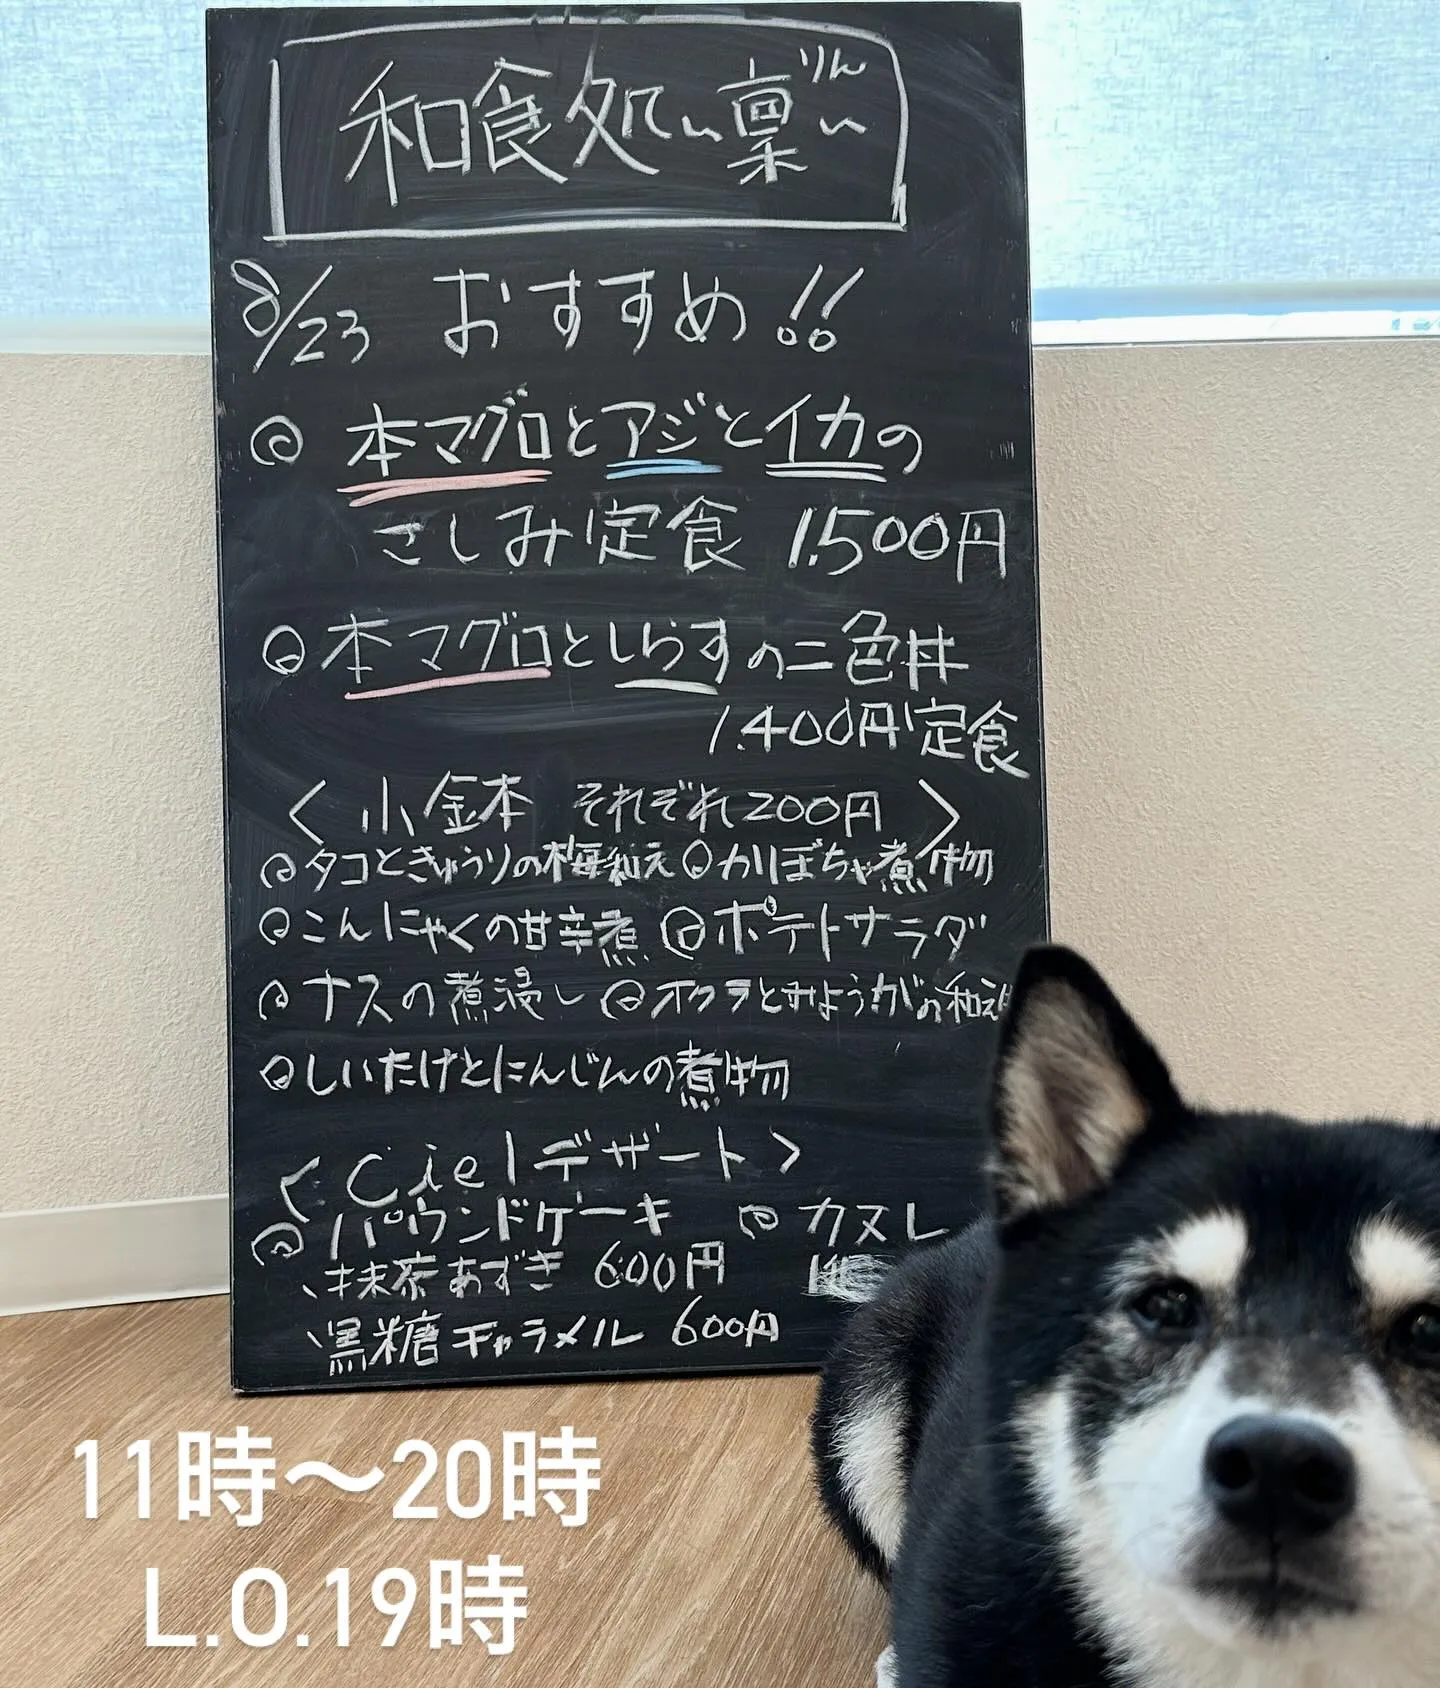 和食処 〜凜〜
りん
8/23 おすすめ!!
◎ 本マグロとアジとイカの
さしみ定食 1.500円
◎ 本マグロとしらすの二色丼
1.400円 定食
〈 小鉢 それぞれ200円 〉
◎ タコときゅうりの梅和え ◎ かぼちゃ煮物
◎ こんにゃくの甘辛煮 ◎ ポテトサラダ
◎ ナスの煮浸し ◎ オクラとみょうがの和え物
◎ しいたけとにんじんの煮物
〈 Ciel デザート 〉
◎ パウンドケーキ ◎ カヌレ
、抹茶あずき 600円
、黒糖キャラメル 600円
11時〜20時
L.O.19時